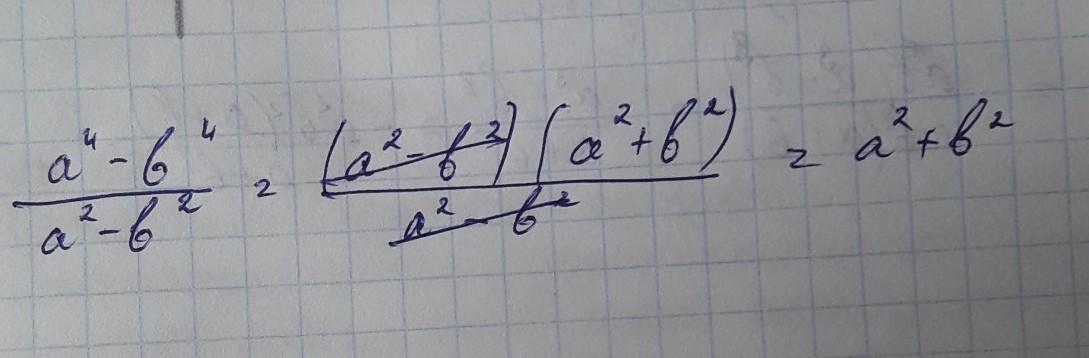 (a⁴ - b⁴)/(a² - b²) = ((a² - b²)(a² + b²))/(a² - b²) = a² + b²